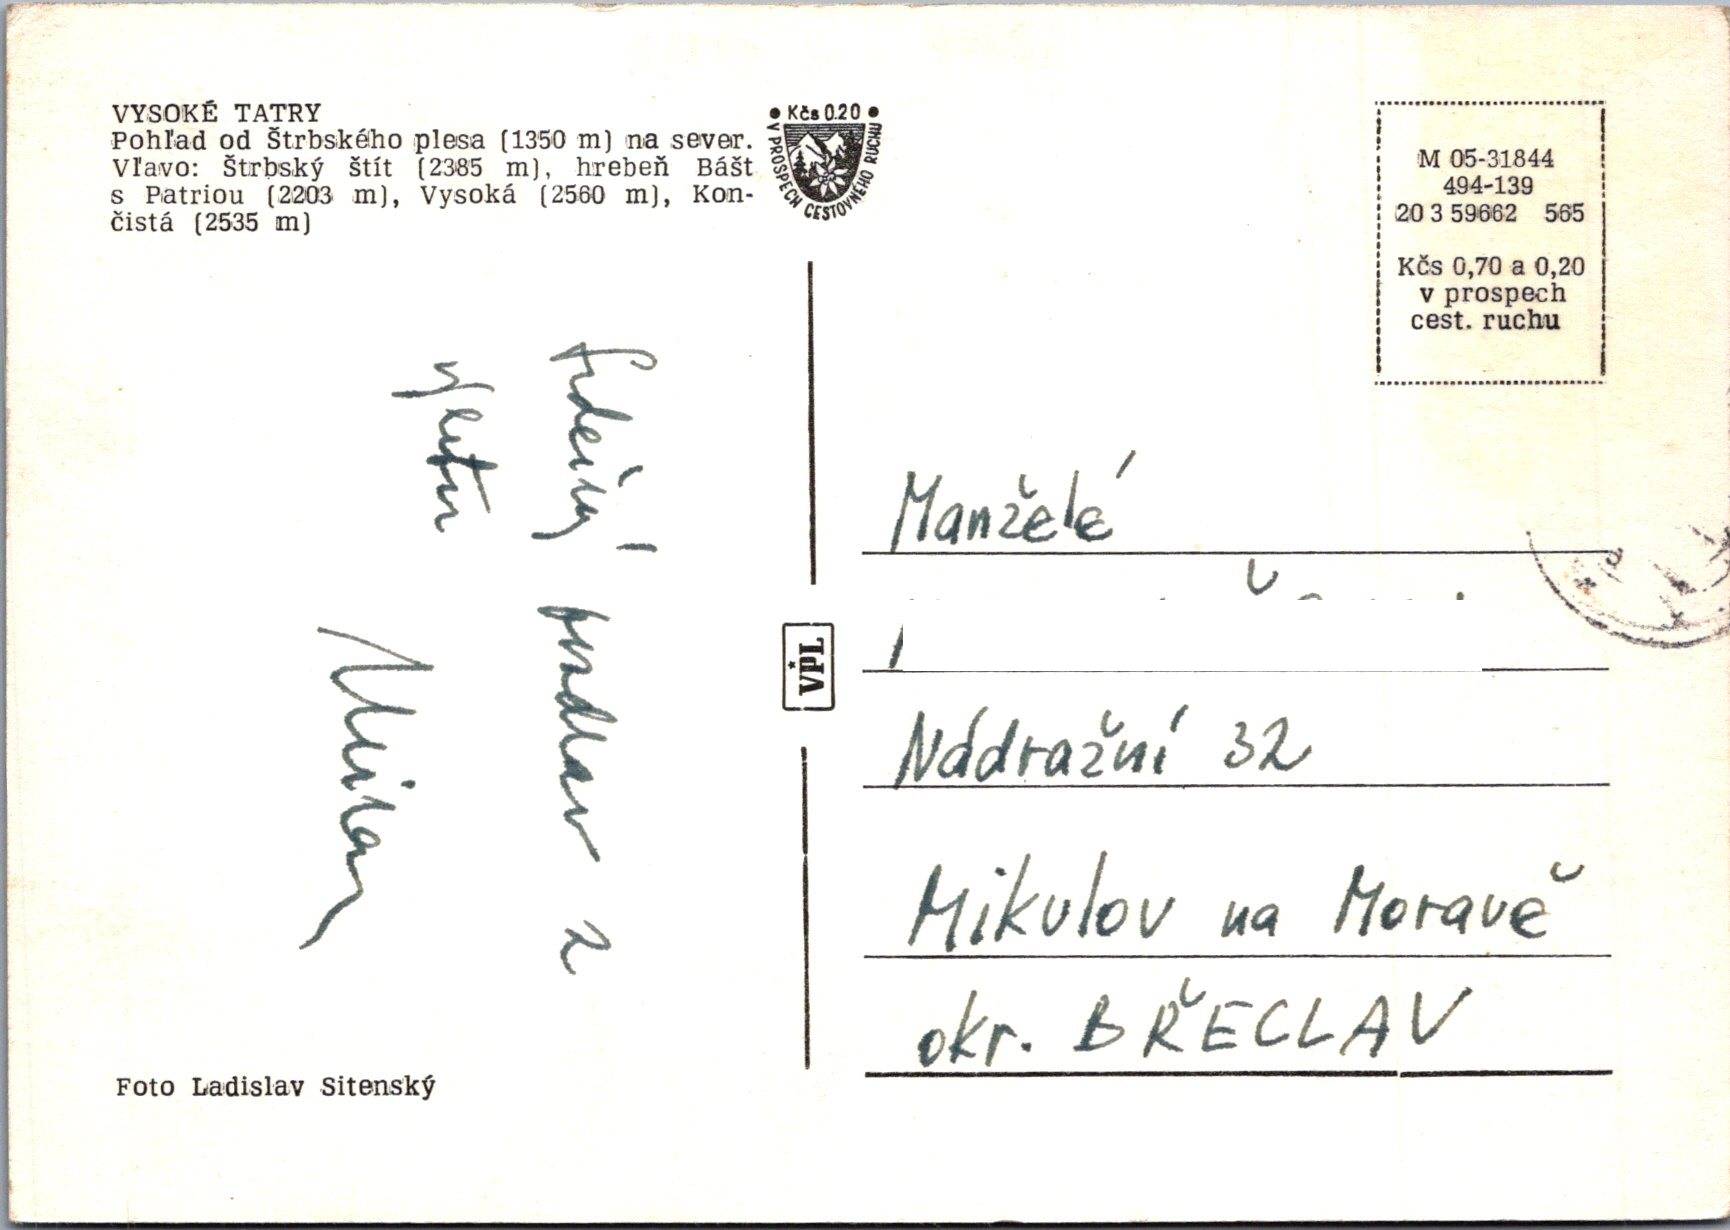 VYSOKÉ TATRY
Pohľad od Štrbského plesa (1350 m) na sever.
Vľavo: Štrbský štít (2385 m), hrebeň Bášt
s Patriou (2203 m), Vysoká (2560 m), Kon-
čistá (2535 m)
• Kčs 0.20 •
V PROSPECH CESTOVNÉHO RUCHU
M 05-31844
494-139
20 3 59662 565
Kčs 0,70 a 0,20
v prospech
cest. ruchu
Srdečný pozdrav z
výletu
Milan
VPL
Manželé
Nádražní 32
Mikulov na Moravě
okr. BŘECLAV
Foto Ladislav Sitenský